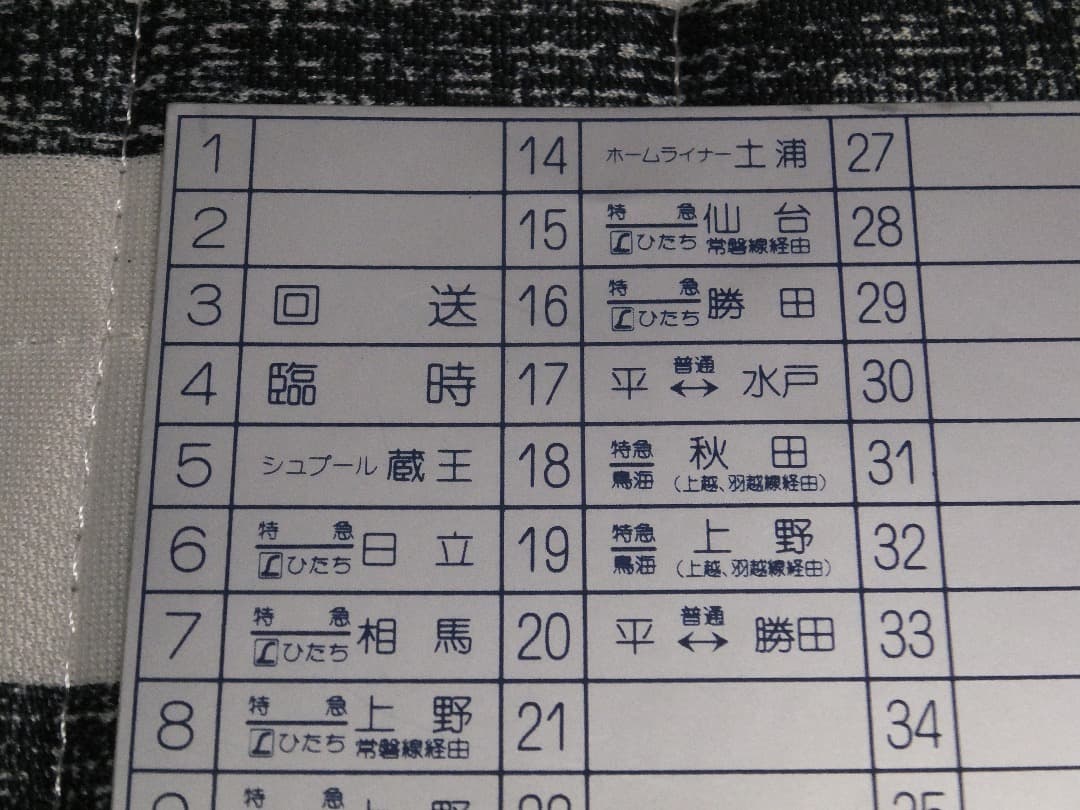 1
14 ホームライナー 土浦
27
2
15 特急 Lひたち 仙台 常磐線経由
28
3 回送
16 特急 Lひたち 勝田
29
4 臨時
17 平 普通 ↔ 水戸
30
5 シュプール 蔵王
18 特急 鳥海 秋田 (上越、羽越線経由)
31
6 特急 Lひたち 日立
19 特急 鳥海 上野 (上越、羽越線経由)
32
7 特急 Lひたち 相馬
20 平 普通 ↔ 勝田
33
8 特急 Lひたち 上野 常磐線経由
21
34
特急 上野